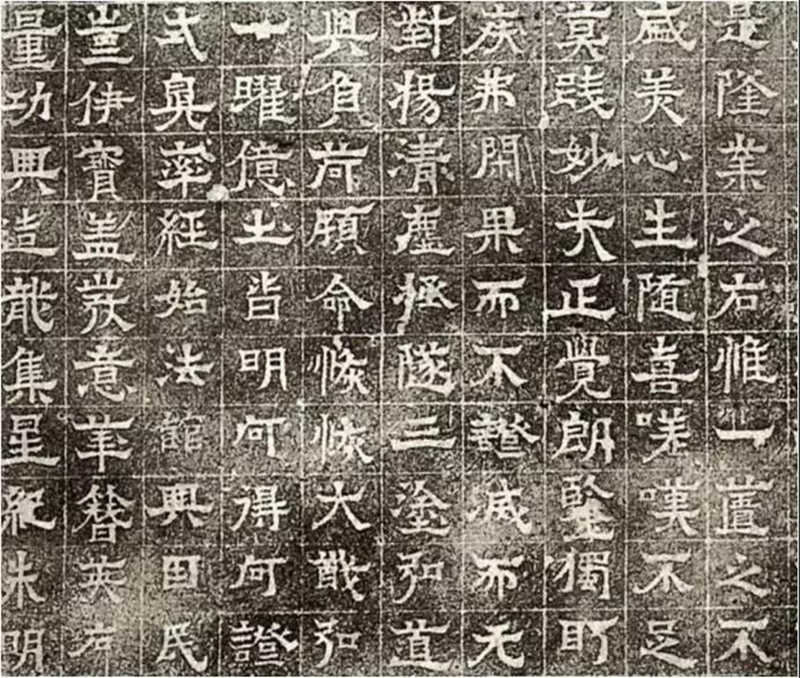 是隆業之右惟一簣之不
盛美心生随喜嗟嘆不足
莫踐妙夫正覺朗鋻獨
疾弗開果而不證滅而无
對揚清塵拯隧三塗弘道
興負荷顧命大弘
一曜億土皆明何得何證
式臬率經始法館興因民
豈伊寶盖厥意華簪英右
量功興造龍集星紀朱明